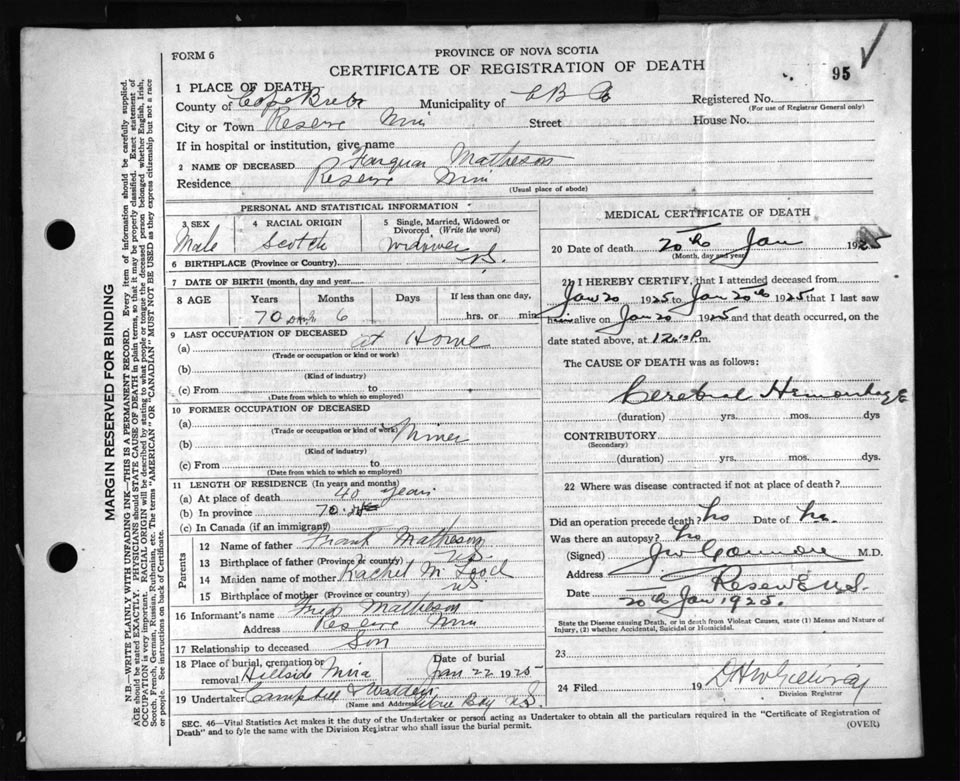 FORM 6
PROVINCE OF NOVA SCOTIA
CERTIFICATE OF REGISTRATION OF DEATH
95
1 PLACE OF DEATH
County of Cape Breton Municipality of C B Co Registered No.
(For use of Registrar General only)
City or Town Reserve Mines Street House No.
If in hospital or institution, give name
2 NAME OF DECEASED Farquhar Matheson
Residence Reserve Mines
(Usual place of abode)
PERSONAL AND STATISTICAL INFORMATION
3 SEX 4 RACIAL ORIGIN 5 Single, Married, Widowed or Divorced (Write the word)
Male Scotch widower
6 BIRTHPLACE (Province or Country) N.S.
7 DATE OF BIRTH (month, day and year)
8 AGE Years Months Days If less than one day,
70 6 hrs. or min.
9 LAST OCCUPATION OF DECEASED
(a) At Home
(Trade or occupation or kind or work)
(b)
(Kind of industry)
(c) From to
(Date from which to which so employed)
10 FORMER OCCUPATION OF DECEASED
(a)
(Trade or occupation or kind of work)
(b) Miner
(Kind of industry)
(c) From to
(Date from which to which so employed)
11 LENGTH OF RESIDENCE (In years and months)
(a) At place of death 40 years
(b) In province 70
(c) In Canada (if an immigrant)
Parents
12 Name of father Frank Matheson
13 Birthplace of father (Province or country) N.S.
14 Maiden name of mother Rachel McLeod
15 Birthplace of mother (Province or country) N.S.
16 Informant's name Fred Matheson
Address Reserve Mines
17 Relationship to deceased Son
18 Place of burial, cremation or removal Hillside Mira Date of burial Jan 22 1925
19 Undertaker Campbell & Wadden
(Name and Address) Glace Bay N.S.
MEDICAL CERTIFICATE OF DEATH
20 Date of death 20th Jan 192
(Month, day and year)
21 I HEREBY CERTIFY, that I attended deceased from
Jan 20 1925 to Jan 20th 1925 that I last saw
him alive on Jan 20 1925 and that death occurred, on
date stated above, at 12 P.m.
The CAUSE OF DEATH was as follows:
Cerebral Hemorrhage
(duration) yrs. mos. dys
CONTRIBUTORY
(Secondary)
(duration) yrs. mos. dys.
22 Where was disease contracted if not at place of death?
Did an operation precede death? No Date of
Was there an autopsy? No
(Signed) M.D.
Address Reserve N.S.
Date 20th Jan 1925.
State the Disease causing Death, or in death from Violent Causes, state (1) Means and Nature of
Injury, (2) whether Accidental, Suicidal or Homicidal.
23
24 Filed 19 D H McGillivray
Division Registrar
SEC. 46—Vital Statistics Act makes it the duty of the Undertaker or person acting as Undertaker to obtain all the particulars required in the "Certificate of Registration of
Death" and to fyle the same with the Division Registrar who shall issue the burial permit.
(OVER)
MARGIN RESERVED FOR BINDING
N.B.—WRITE PLAINLY WITH UNFADING INK—THIS IS A PERMANENT RECORD. Every item of information should be carefully supplied.
AGE should be stated EXACTLY. PHYSICIANS should STATE CAUSE OF DEATH in plain terms, so that it may be properly classified. Exact statement of
OCCUPATION is very important. RACIAL ORIGIN will be described by stating to what people or tongue the deceased person belonged whether English, Irish,
Scotch, French, German, Russian, Ruthenian, etc. The terms "AMERICAN" or "CANADIAN" MUST NOT BE USED as they express citizenship but not a race
or people. See instructions on back of Certificate.